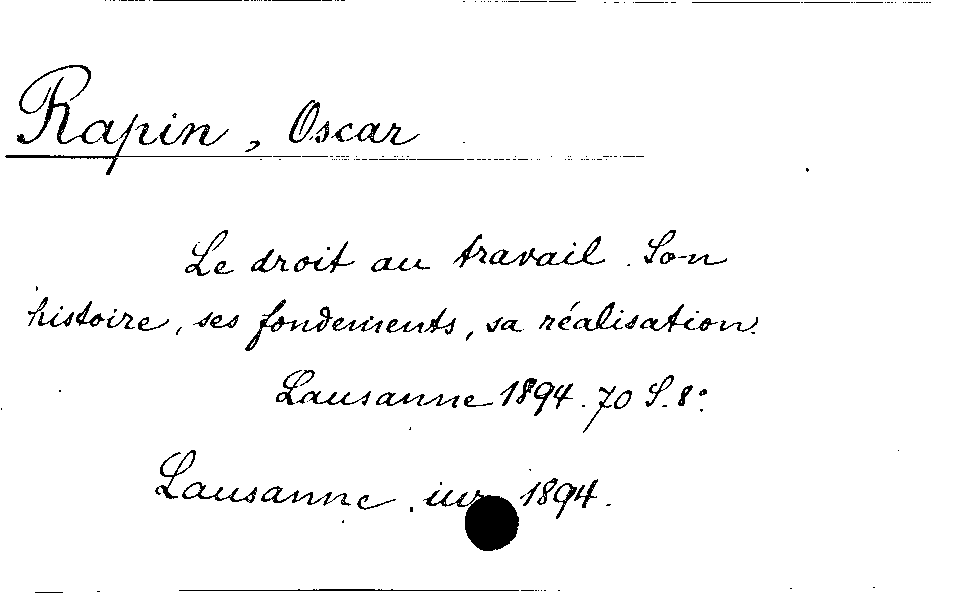 Rapin, Oscar
Le droit au travail. Son
histoire, ses fondements, sa réalisation.
Lausanne 1894. 70 S. 8°.
Lausanne, iur 1894.